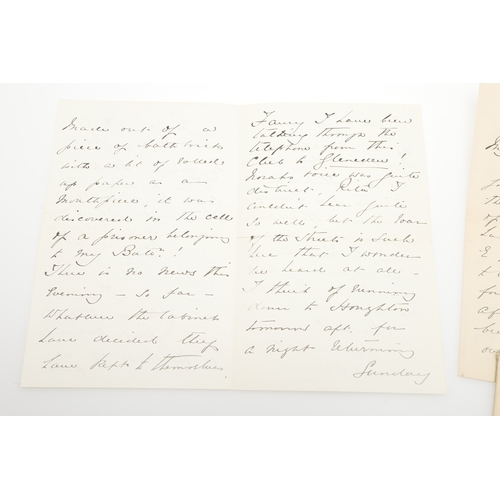 made out of a
piece of bath brick
with a bit of rolled
up paper as a
mouthpiece, it was
discovered in the cell
of a prisoner belonging
to my Batn!
There is no news this
evening - so far -
whatever the Cabinet
have decided they
have kept to themselves
Fancy I have been
talking through the
telephone from this
Club to
Norahs voice was quite
distinct, Rita I
couldn't hear quite
so well, but the roar
of the Streets is such
here that I wonder
be heard at all -
I think of running
down to Houghton
tomorrow aft. for
a night returning
Sunday